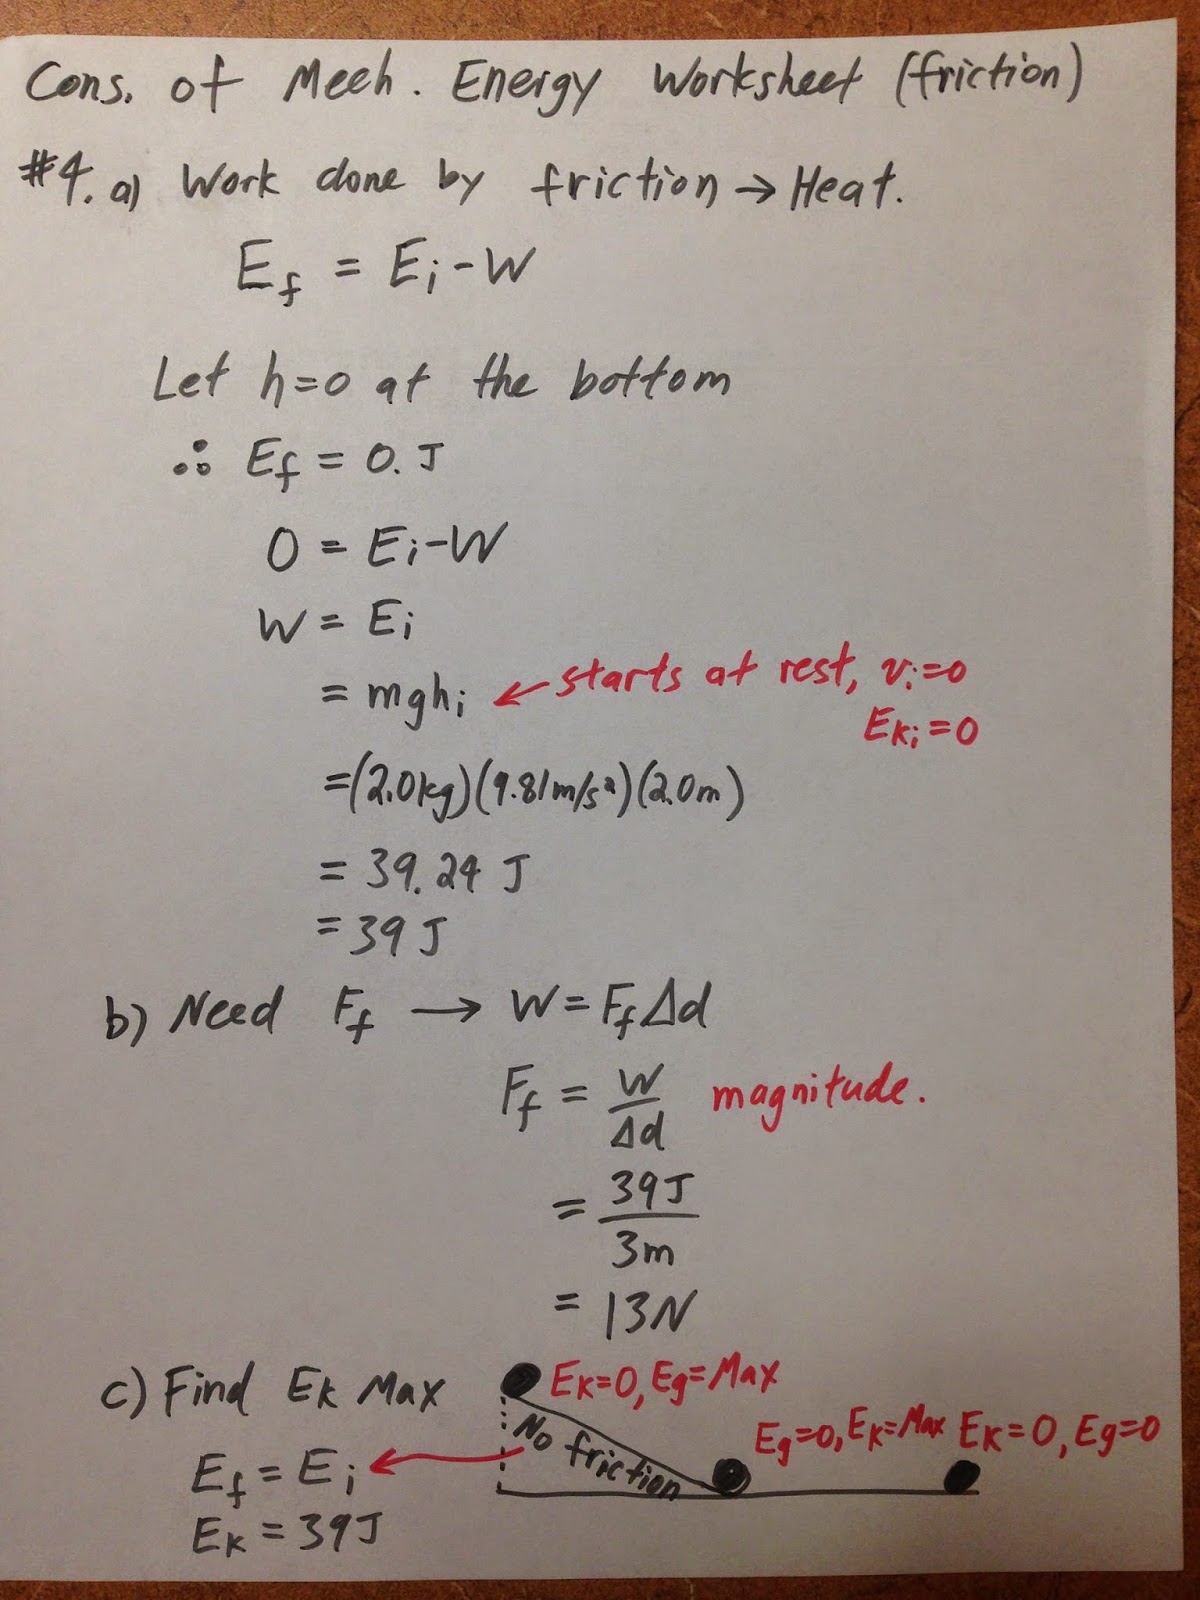 Cons. of Mech. Energy Worksheet (friction)
#4. a) Work done by friction → Heat.
E_f = E_i - W
Let h=0 at the bottom
∴ E_f = 0. J
0 = E_i - W
W = E_i
= mgh_i ← starts at rest, v_i=0
E_ki=0
=(2.0kg)(9.81m/s²)(2.0m)
= 39.24 J
= 39 J
b) Need F_f → W = F_f Δd
F_f = W/Δd magnitude.
= 39J/3m
= 13N
c) Find Ek Max
Ek=0, Eg=Max
No friction
Eg=0, Ek=Max Ek=0, Eg=0
E_f = E_i ←
Ek = 39J